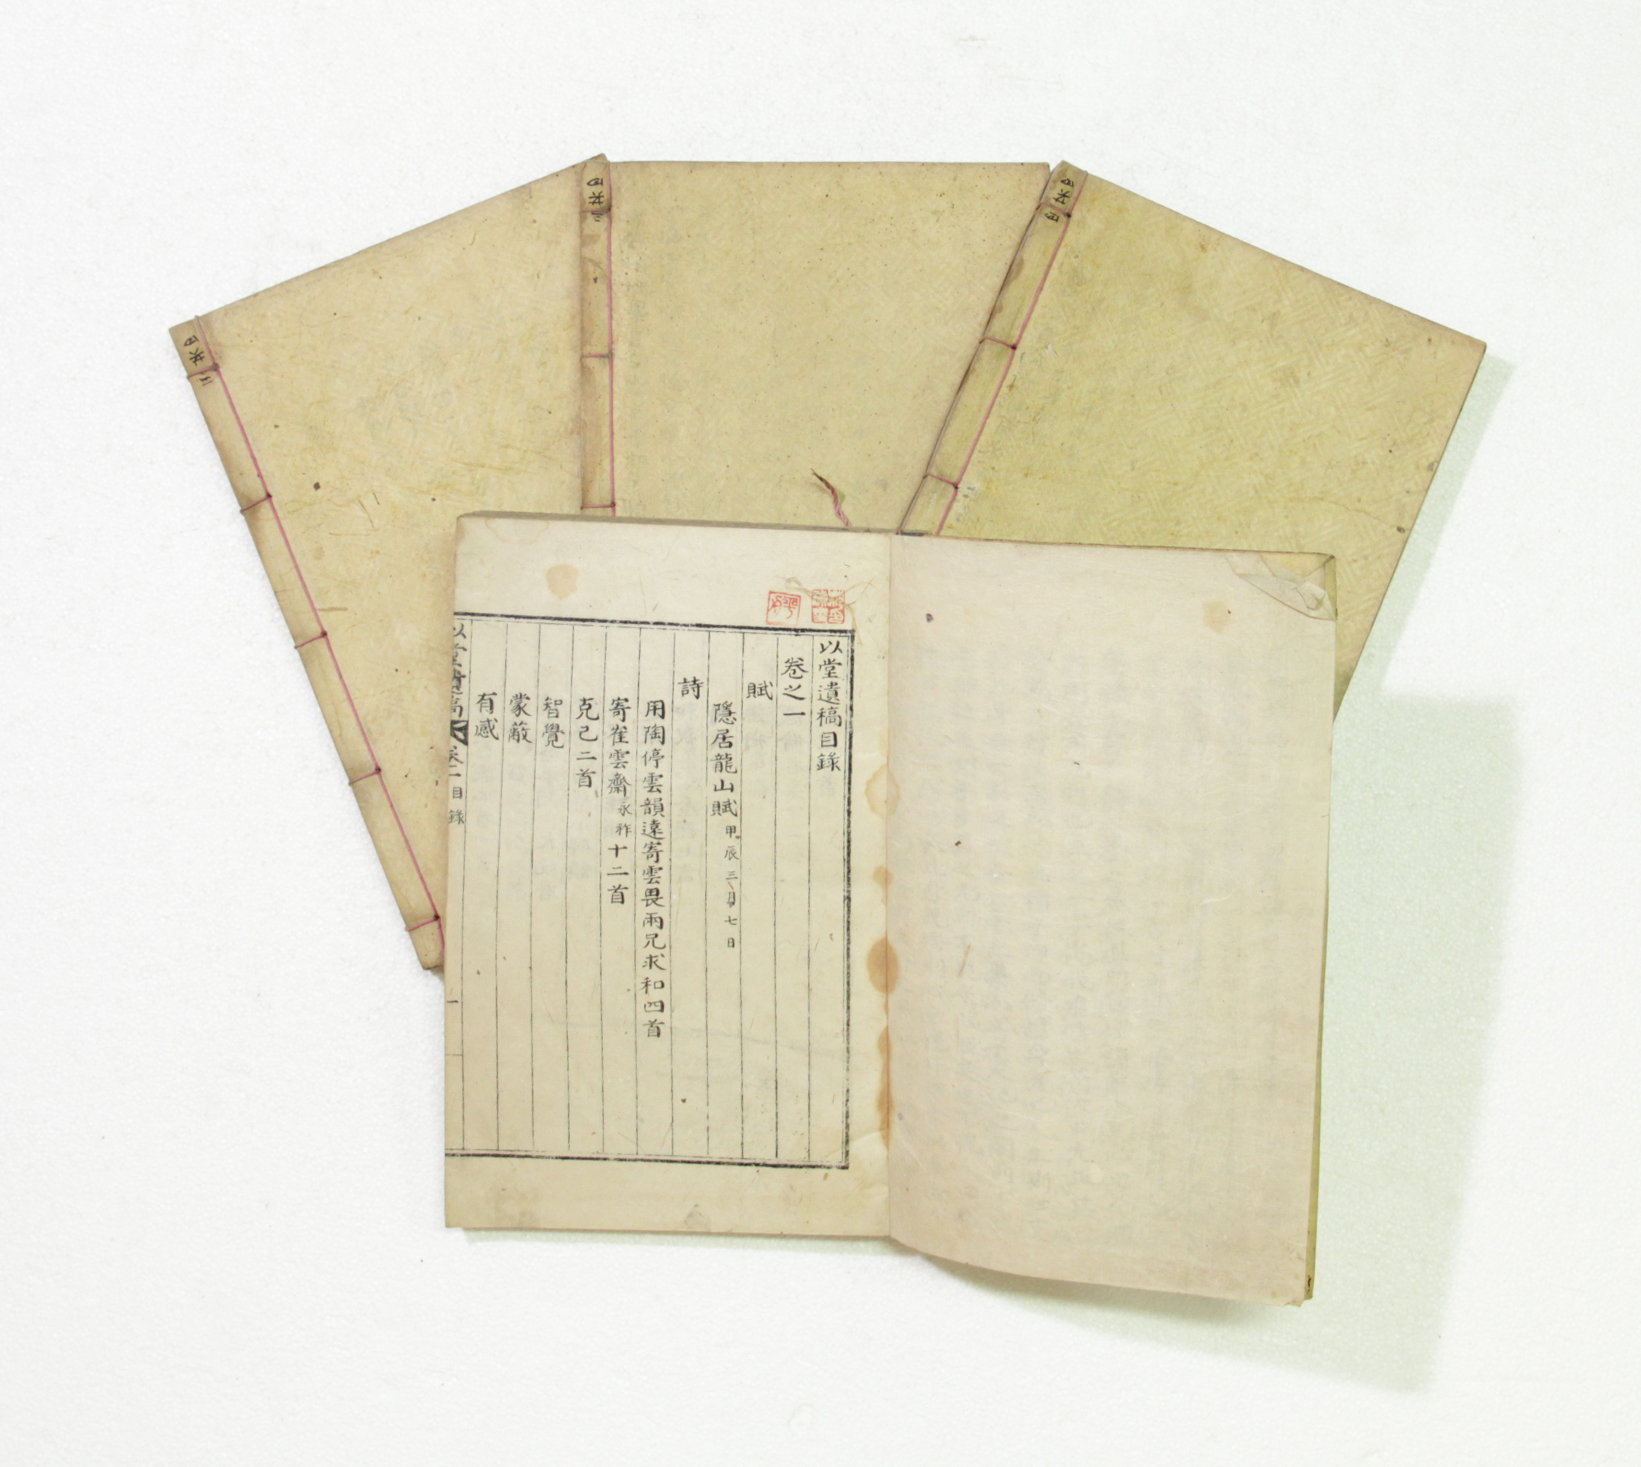 以堂遺稿目錄
卷之一
賦
隱居龍山賦甲辰三月七日
詩
用陶停雲韻遠寄雲畏兩兄求和四首
寄崔雲齋永祚十二首
克己二首
智覺
蒙蔽
有感
以堂遺稿 卷一目錄 一
共四 二
共四 三
共四 四